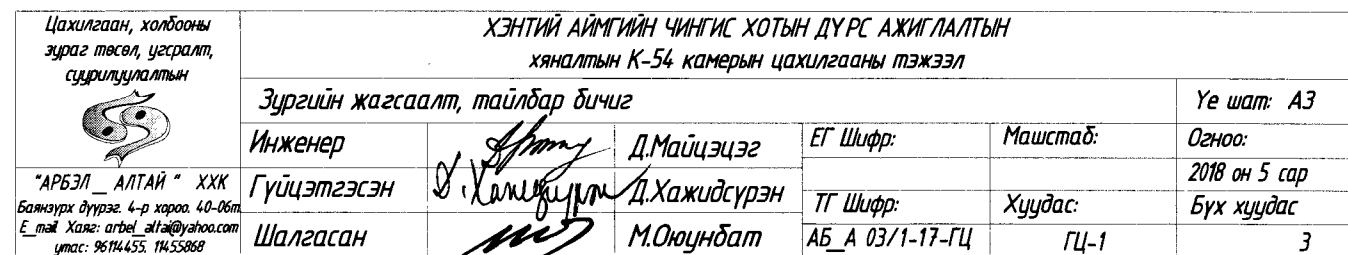 Цахилгаан, холбооны
зураг төсөл, угсралт,
суурилуулалтын
"АРБЭЛ__ АЛТАЙ " ХХК
Баянзүрх дүүрэг. 4-р хороо. 40-06т
E_mail Хаяг: arbel_altai@yahoo.com
утас: 96114455, 11455868
ХЭНТИЙ АЙМГИЙН ЧИНГИС ХОТЫН ДҮРС АЖИГЛАЛТЫН
хяналтын К-54 камерын цахилгааны тэжээл
Зургийн жагсаалт, тайлбар бичиг
Үе шат: А3
Инженер Д.Майцэцэг ЕГ Шифр: Машстаб: Огноо:
2018 он 5 сар
Гүйцэтгэсэн Д.Хажидсүрэн
ТГ Шифр: Хуудас: Бүх хуудас
Шалгасан М.Оюунбат АБ_А 03/1-17-ГЦ ГЦ-1 3